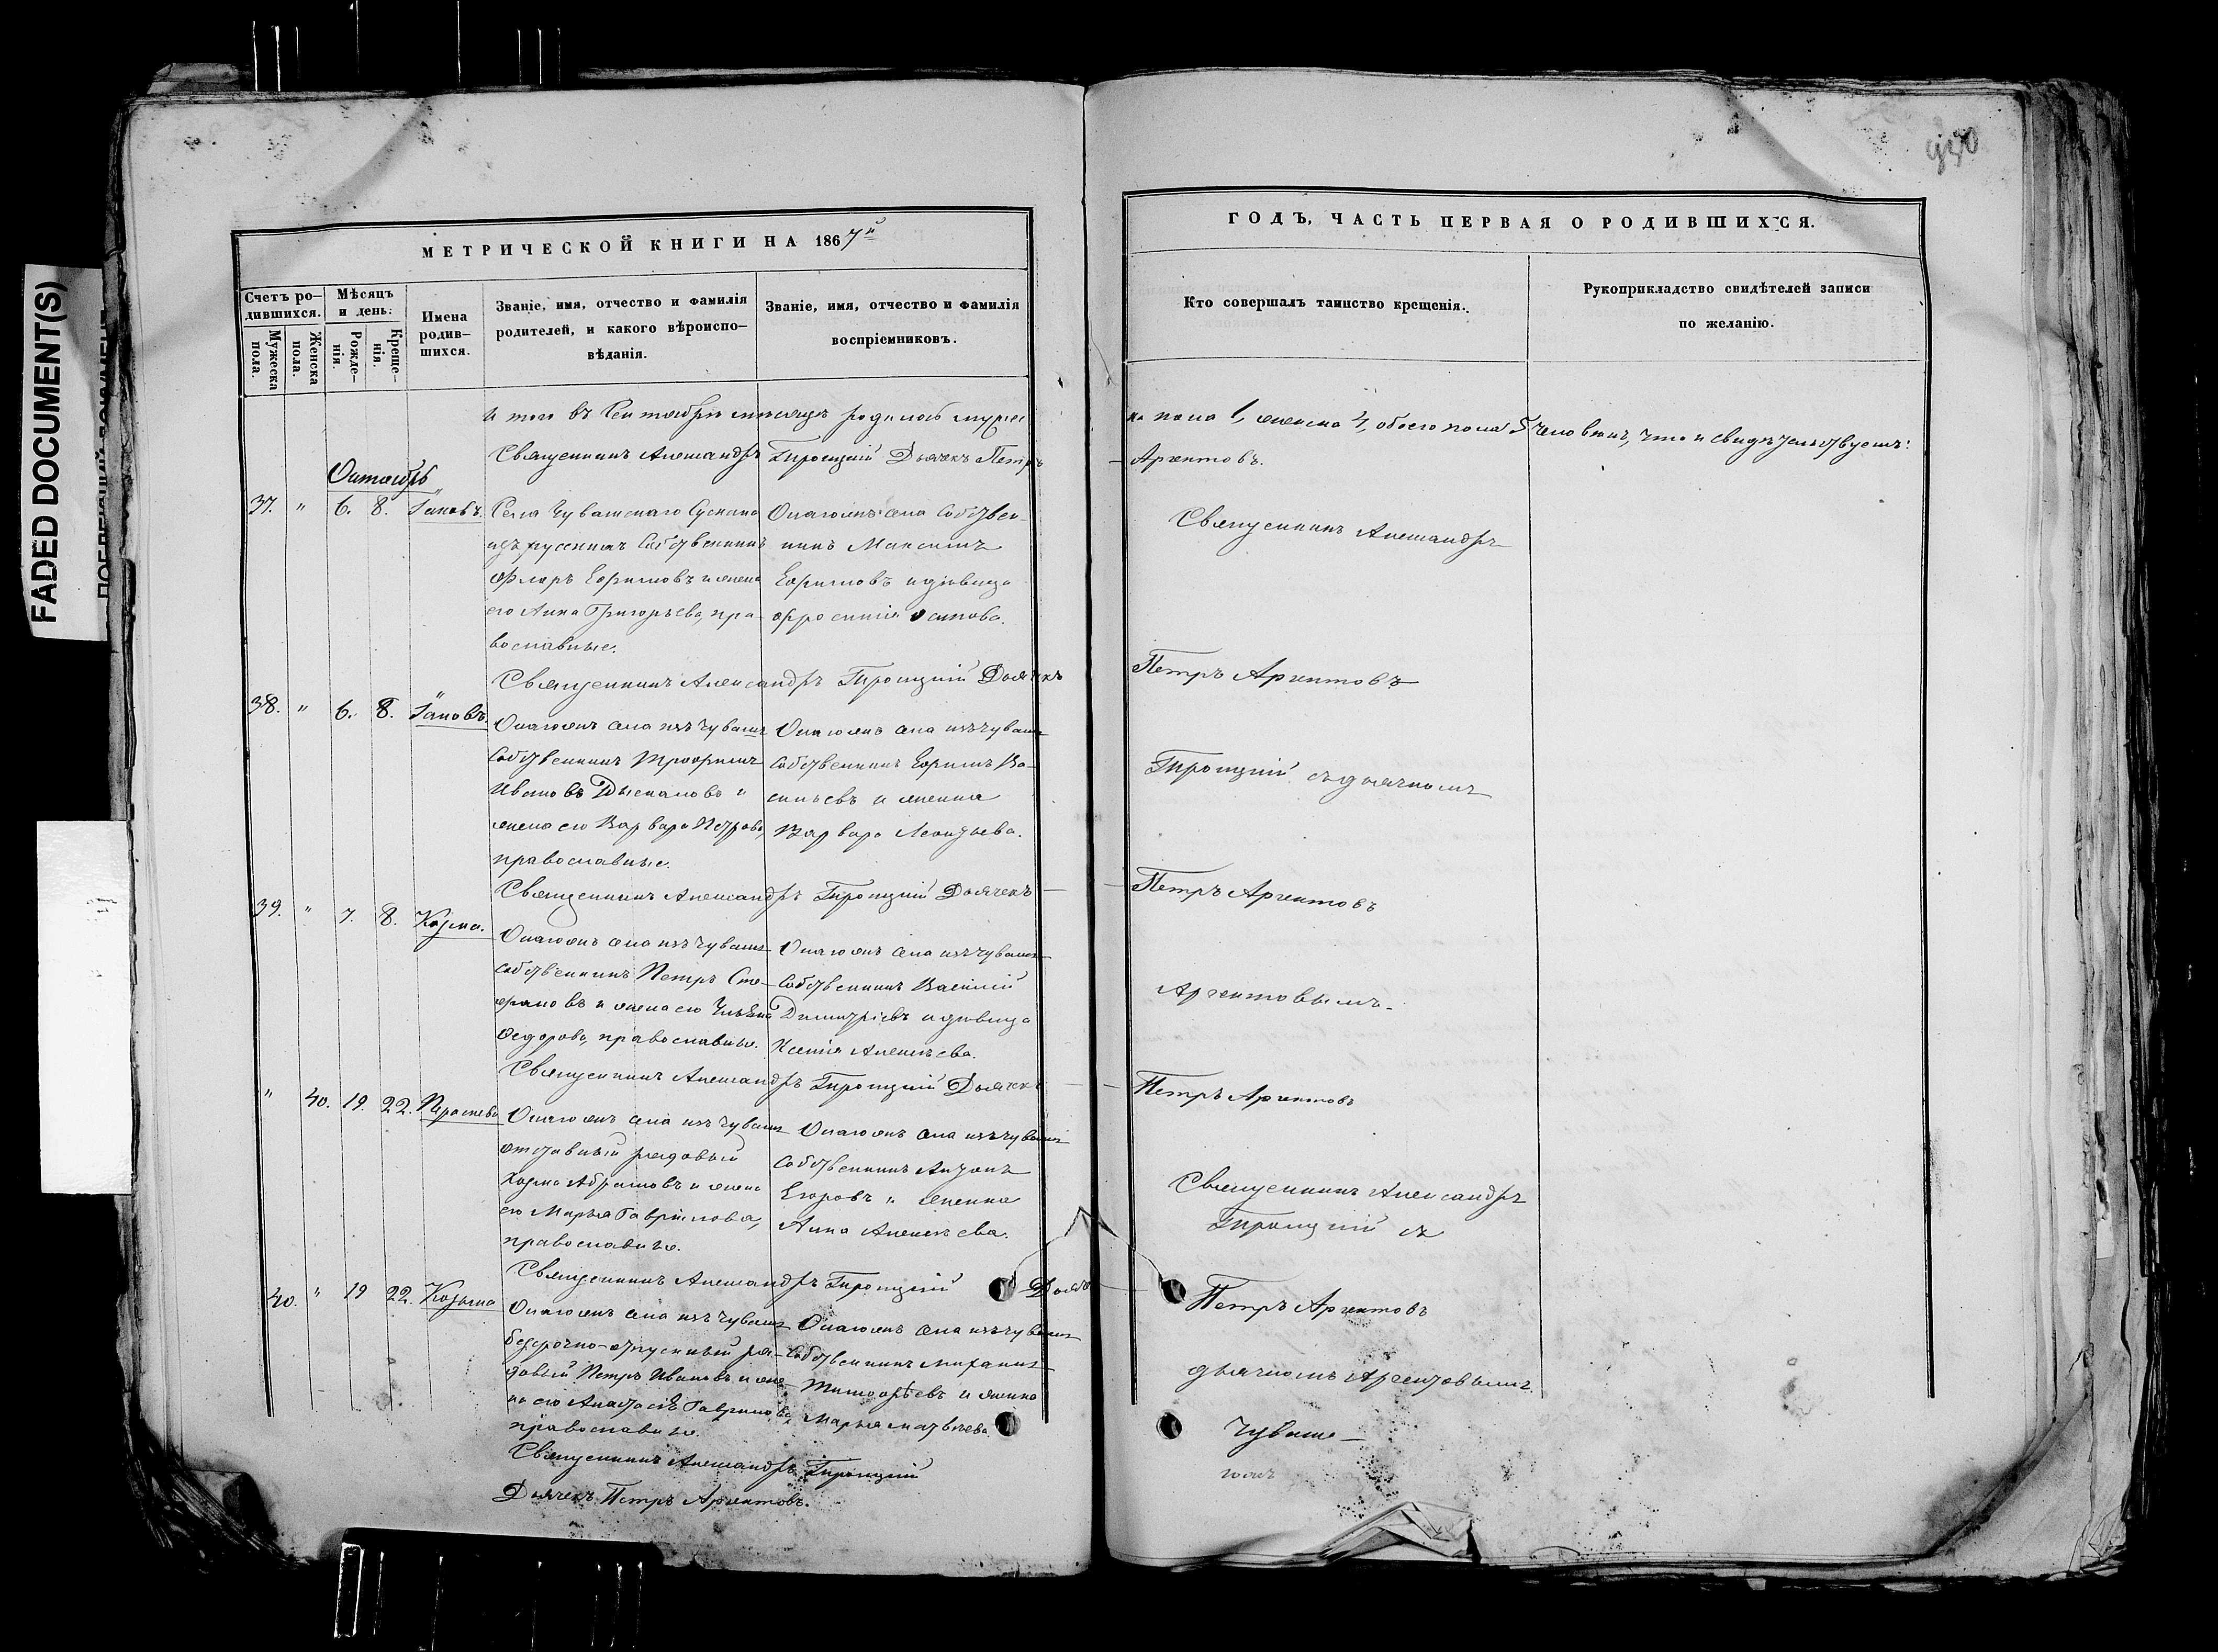 FADED DOCUMENT(S)
930
МЕТРИЧЕСКОЙ КНИГИ НА 1867й
Счетъ ро-
дившихся.
Мужеска пола.
Женска пола.
Мѣсяцъ
и день.
Рожде-
нія.
Креще-
нія.
Имена
родив-
шихся.
Званіе, имя, отчество и фамилія
родителей, и какого вѣроиспо-
вѣданія.
Званіе, имя, отчество и фамилія
воспріемниковъ.
ГОДЪ, ЧАСТЬ ПЕРВАЯ О РОДИВШИХСЯ.
Кто совершалъ таинство крещенія.
Рукоприкладство свидѣтелей записи
по желанію.
Итого въ Сентябрѣ мѣсяцѣ родилось мужес
ка пола 1, женска 4, обоего пола 5 человѣкъ, что и свидѣтельствуемъ:
Священникъ Александръ Троицкій Дьячекъ Петръ
Аргентовъ.
Октябрь
37. " 6. 8. Іаковъ.
Села Чувашскаго Сускана
изъ русскихъ собственникъ
Флоръ Ефимовъ и жена
его Анна Григорьева, пра-
вославные.
Онагожъ села собствен-
никъ Максимъ
Ефимовъ и дѣвица
Ефросинія Осипова.
Священникъ Александръ
Священникъ Александръ Троицкій Дьячекъ
Петръ Аргентовъ
38. " 6. 8. Іаковъ.
Онагожъ села изъ чувашъ
собственникъ Трофимъ
Ивановъ Дыскаловъ и
жена его Варвара Петрова,
православные.
Онагожъ села изъ чувашъ
собственникъ Ефимъ Ва-
сильевъ и женка
Варвара Леонтьева.
Троицкій съ дьячкомъ
Священникъ Александръ Троицкій Дьячекъ
Петръ Аргентовъ
39. " 7. 8. Козма.
Онагожъ села изъ чувашъ
собственникъ Петръ Сте-
фановъ и жена его Ульяна
Федорова, православные.
Онагожъ села изъ чувашъ
собственникъ Василій
Димитріевъ и дѣвица
Ксенія Алексѣева.
Аргентовымъ.
Священникъ Александръ Троицкій Дьячекъ
Петръ Аргентовъ
" 40. 19. 22. Парасковья
Онагожъ села изъ чувашъ
отставный рядовый
Козма Абрамовъ и жена
его Марья Гаврилова,
православные.
Онагожъ села изъ чувашъ
собственникъ Антонъ
Егоровъ и женка
Анна Алексѣева.
Священникъ Александръ
Троицкій съ
Священникъ Александръ Троицкій Дьячекъ
Петръ Аргентовъ
40. " 19 22. Козьма
Онагожъ села изъ чувашъ
безсрочно-отпускный ря-
довый Петръ Ивановъ и же-
на его Анастасія Гаврилова,
православные.
Онагожъ села изъ чувашъ
собственникъ Михаилъ
Тимофѣевъ и женка
Марья Матвѣева.
дьячкомъ Аргентовымъ.
Священникъ Александръ Троицкій
Дьячекъ Петръ Аргентовъ.